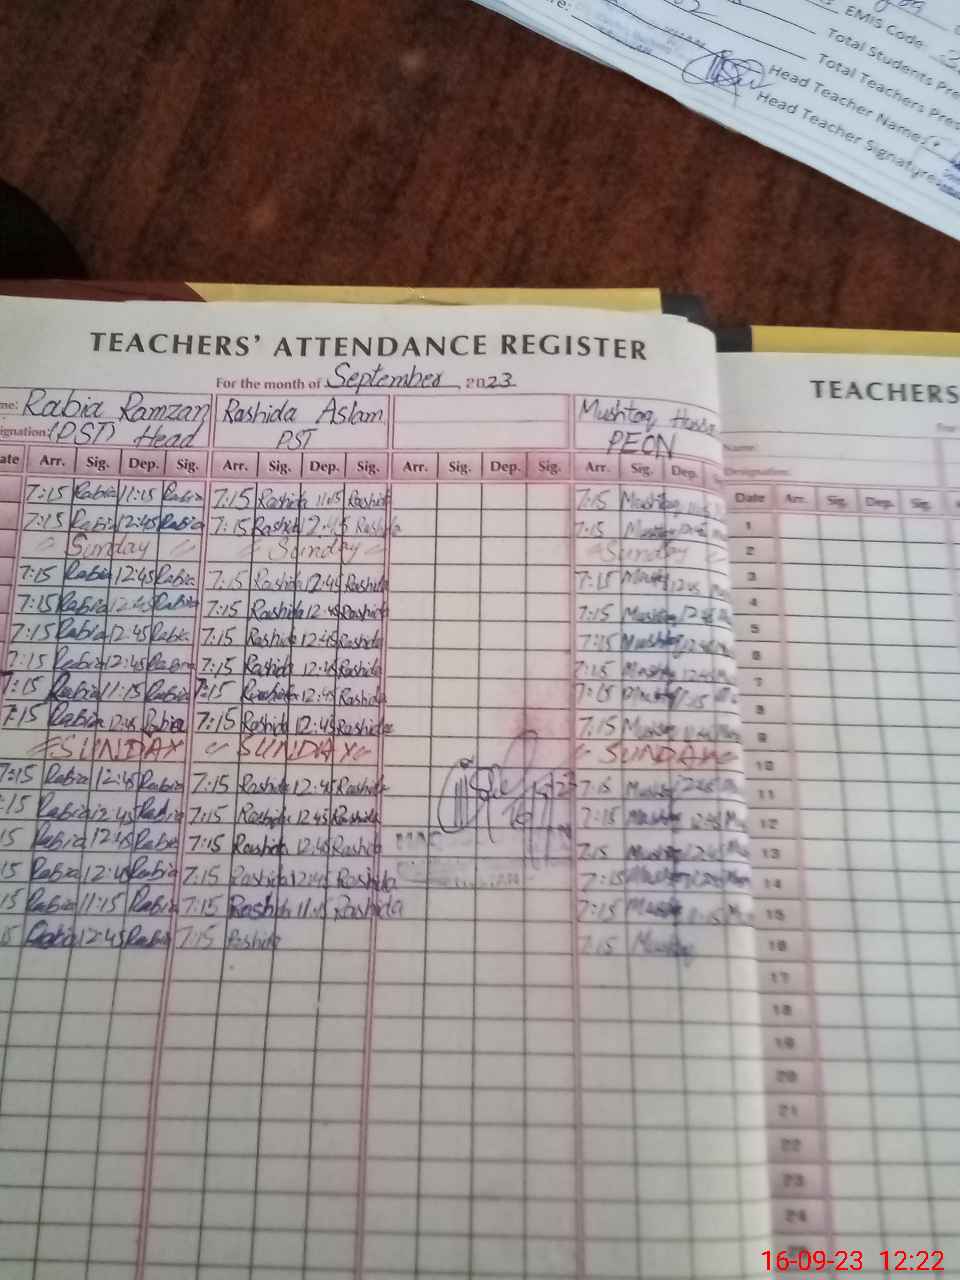 EMIS Code:
Total Students Pre
Total Teachers Pres
Head Teacher Name:
Head Teacher Signature
TEACHERS' ATTENDANCE REGISTER
For the month of September, 2023
me: Rabia Ramzan Rashida Aslam Mushtaq Hussa
ignation: (PST) Head PST PEON
ate Arr. Sig. Dep. Sig. Arr. Sig. Dep. Sig. Arr. Sig. Dep. Sig. Arr. Sig. Dep. S
7:15 Rabia 11:15 Rabia 7:15 Rashida 11:15 Rashida 7:15 Mushtaq
7:15 Rabia 12:45 Rabia 7:15 Rashida 12:45 Rashida 7:15 Mushtaq 12:45
Sunday Sunday Sunday
7:15 Rabia 12:45 Rabia 7:15 Rashida 12:45 Rashida 7:15 Mushtaq 12:45
7:15 Rabia 12:45 Rabia 7:15 Rashida 12:45 Rashida 7:15 Mushtaq 12:45
7:15 Rabia 12:45 Rabia 7:15 Rashida 12:45 Rashida 7:15 Mushtaq 12:45
7:15 Rabia 12:45 Rabia 7:15 Rashida 12:45 Rashida 7:15 Mushtaq 12:45
7:15 Rabia 11:15 Rabia 7:15 Rashida 12:45 Rashida 7:15 11:15
7:15 Rabia 12:45 Rabia 7:15 Rashida 12:45 Rashida 7:15 Mushtaq 12:45
SUNDAY SUNDAY SUNDAY
7:15 Rabia 12:45 Rabia 7:15 Rashida 12:45 Rashida 7:15 Mushtaq 12:45
:15 Rabia 12:45 Rabia 7:15 Rashida 12:45 Rashida 7:15 Mushtaq 12:45
15 Rabia 12:45 Rabia 7:15 Rashida 12:45 Rashida 7:15 Mushtaq 12:45
15 Rabia 12:45 Rabia 7:15 Rashida 12:45 Rashida 7:15 Mushtaq 12:45
15 Rabia 11:15 Rabia 7:15 Rashida 11:15 Rashida 7:15 Mushtaq 11:15
15 Rabia 12:45 Rabia 7:15 Rashida 7:15 Mushtaq
TEACHERS
Name:
Designation:
Date Arr. Sig. Dep. Sig.
1
2
3
4
5
6
7
8
9
10
11
12
13
14
15
16
17
18
19
20
21
22
23
24
16-09-23 12:22